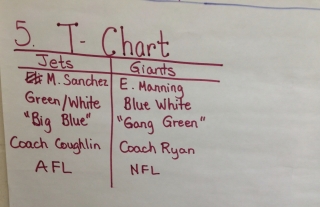 5. T- Chart
Jets Giants
M. Sanchez E. Manning
Green/White Blue White
"Big Blue" "Gang Green"
Coach Coughlin Coach Ryan
AFL NFL